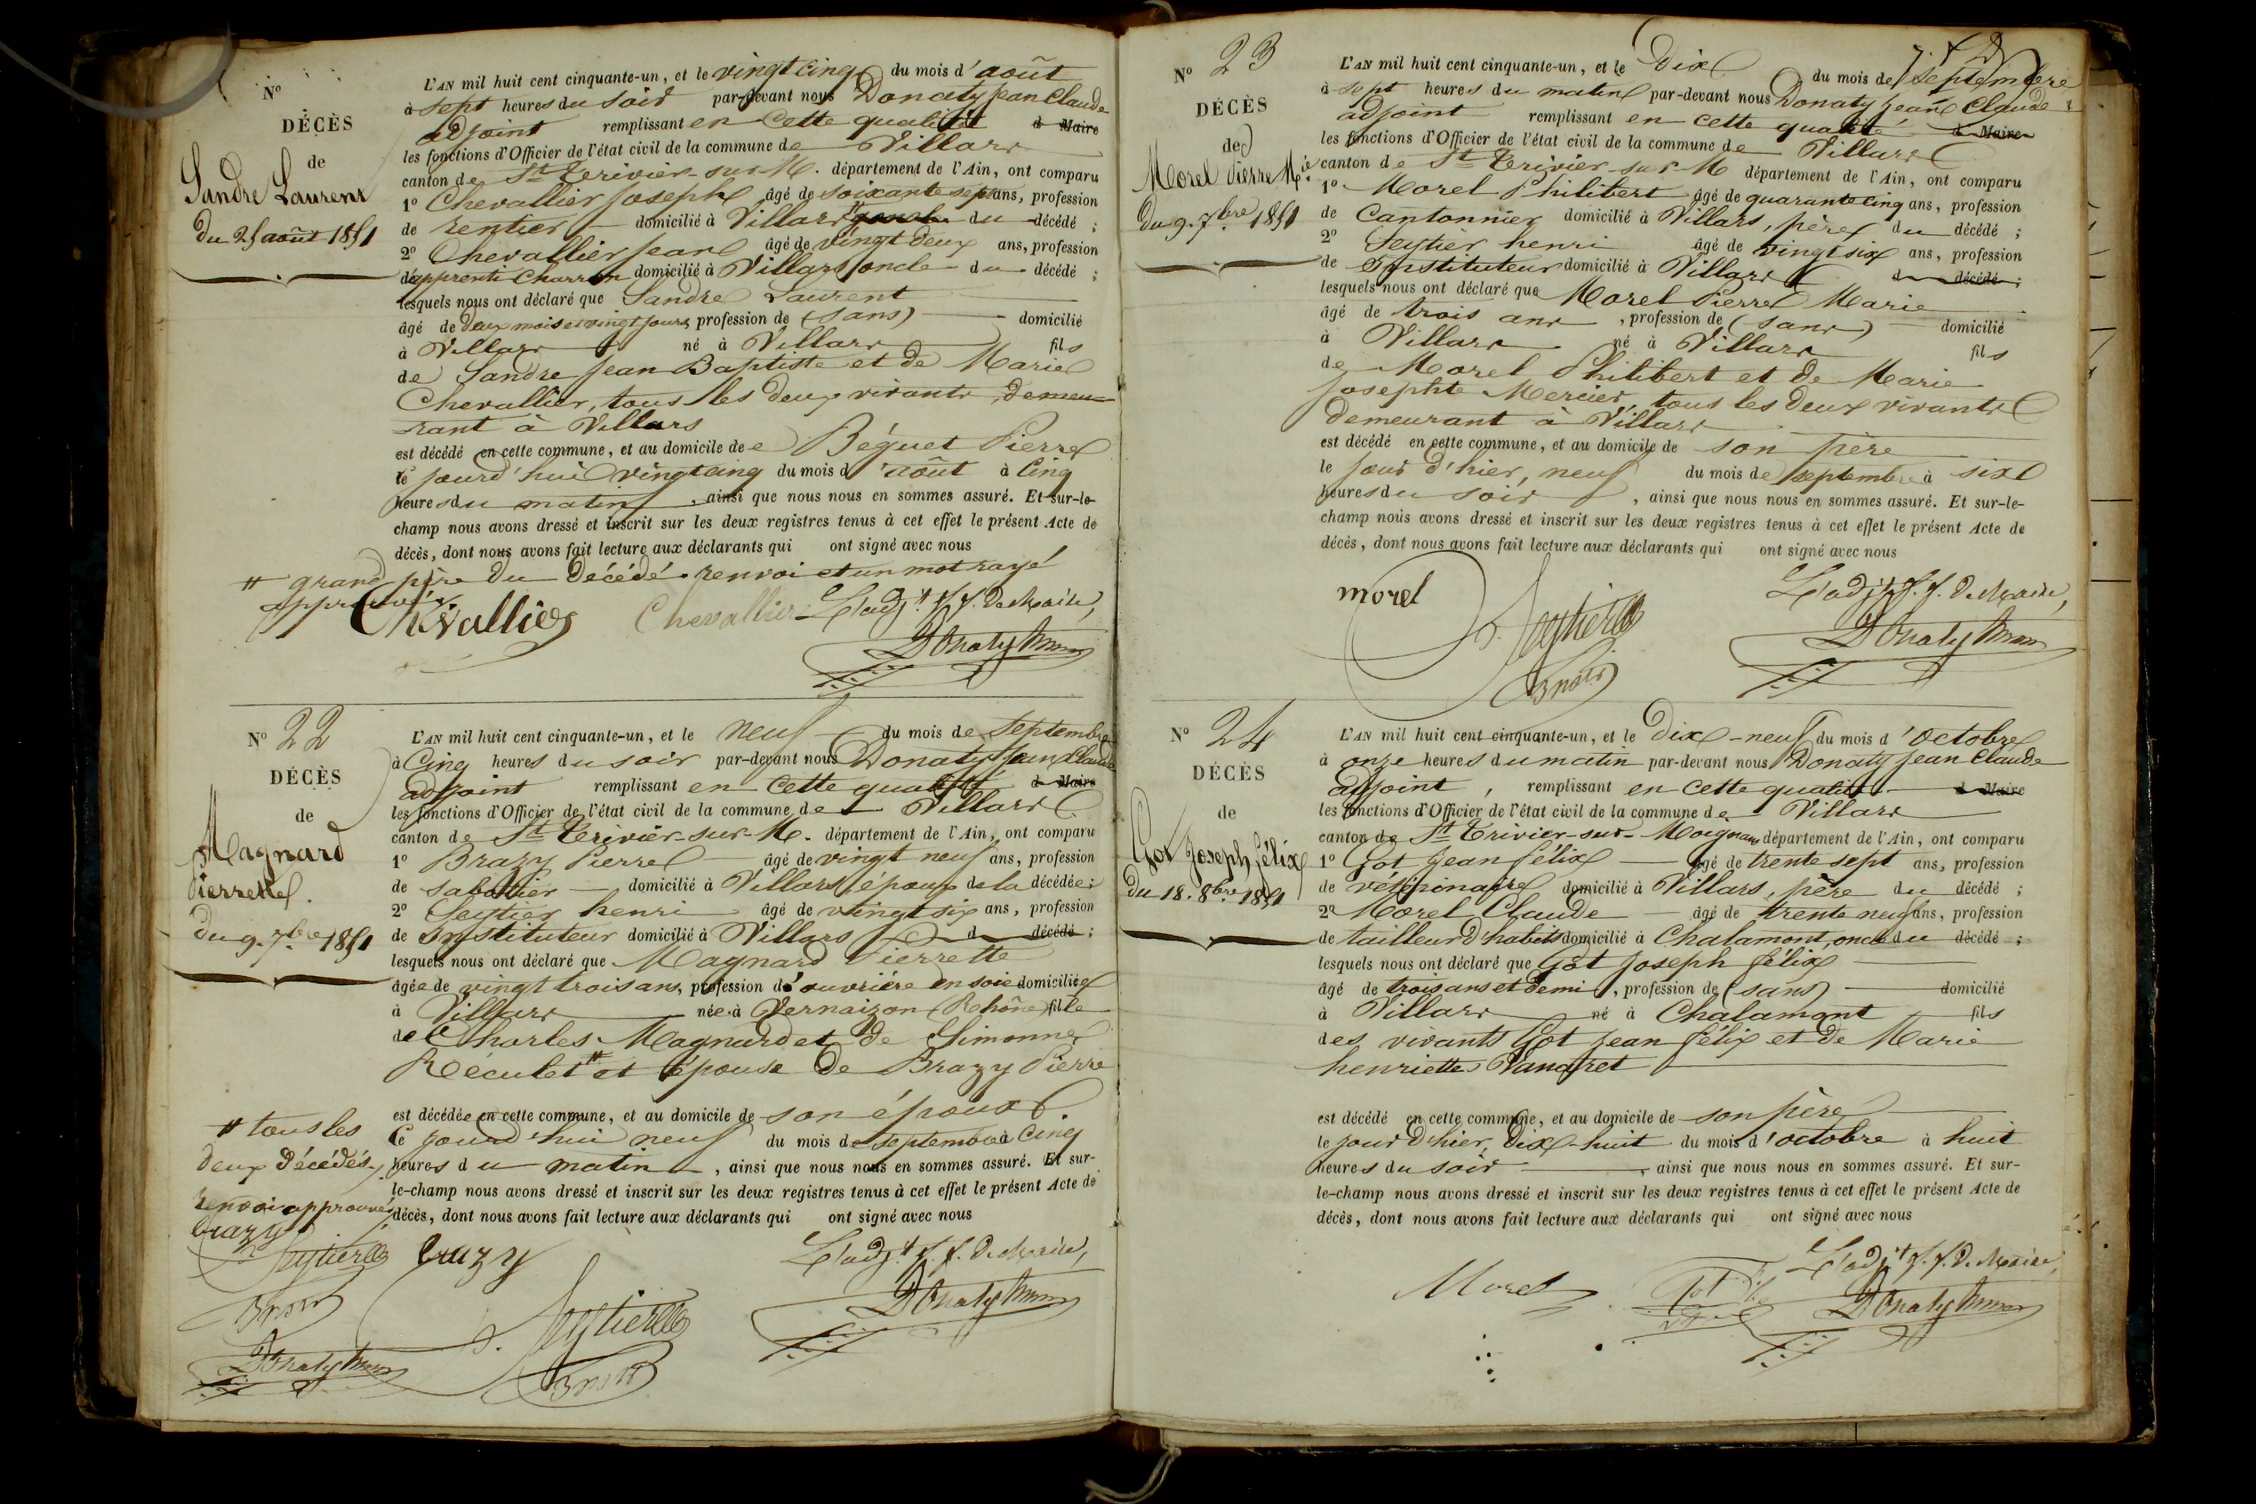 N°
DÉCÈS
de
Sandre Laurent
du 25 août 1851
L'AN mil huit cent cinquante-un, et le vingt cinq du mois d'août
à sept heures du soir par-devant nous Donaty Jean Claude
adjoint remplissant en cette qualité d Maire
les fonctions d'Officier de l'état civil de la commune de Villars
canton de St Trivier-sur-M. département de l'Ain, ont comparu
1° Chevallier Joseph âgé de soixante sept ans, profession
de rentier domicilié à Villars # du décédé ;
2° Chevallier Jean âgé de vingt deux ans, profession
d'apprenti charron domicilié à Villars oncle du décédé ;
lesquels nous ont déclaré que Sandre Laurent
âgé de deux mois et vingt jours, profession de (sans) domicilié
à Villars né à Villars fils
de Sandre Jean Baptiste et de Marie
Chevallier, tous les deux vivants, demeu-
rant à Villars
est décédé en cette commune, et au domicile de Béguet Pierre
ce jourd'hui vingt cinq du mois d'août à cinq
heures du matin, ainsi que nous nous en sommes assuré. Et sur-le-
champ nous avons dressé et inscrit sur les deux registres tenus à cet effet le présent Acte de
décès, dont nous avons fait lecture aux déclarants qui ont signé avec nous
# grand père du décédé. renvoi et un mot rayé
approuvés.
Chevallier Chevallier L'adjt f. f. de Maire,
Donaty
N° 22
DÉCÈS
de
Magnard
Pierrette.
du 9. 7bre 1851
L'AN mil huit cent cinquante-un, et le neuf du mois de septembre
à cinq heures du soir par-devant nous Donaty Jean Claude
adjoint remplissant en cette qualité d Maire
les fonctions d'Officier de l'état civil de la commune de Villars
canton de St Trivier-sur-M. département de l'Ain, ont comparu
1° Brazy Pierre âgé de vingt neuf ans, profession
de sabotier domicilié à Villars, époux de la décédée ;
2° Seytier henri âgé de vingt six ans, profession
de instituteur domicilié à Villars d décédé ;
lesquels nous ont déclaré que Magnard Pierrette
âgée de vingt trois ans, profession d'ouvrière en soie domiciliée
à Villars née à Vernaizon (Rhône) fille
de Charles Magnard et de Simonne
Réculet # et épouse de Brazy Pierre
est décédée en cette commune, et au domicile de son époux.
ce jourd'hui neuf du mois de septembre à cinq
heures du matin, ainsi que nous nous en sommes assuré. Et sur-
le-champ nous avons dressé et inscrit sur les deux registres tenus à cet effet le présent Acte de
décès, dont nous avons fait lecture aux déclarants qui ont signé avec nous
# tous les
deux décédés,
renvoi approuvé,
brazy
Seytier
Donaty
brazy
Seytier
L'adjt f. f. de Maire,
Donaty
N° 23
DÉCÈS
de
Morel Pierre Mie
du 9. 7bre 1851
L'AN mil huit cent cinquante-un, et le Dix du mois de septembre
à sept heures du matin par-devant nous Donaty Jean Claude
adjoint remplissant en cette qualité d Maire
les fonctions d'Officier de l'état civil de la commune de Villars
canton de St Trivier-sur-M département de l'Ain, ont comparu
1° Morel Philibert âgé de quarante cinq ans, profession
de Cantonnier domicilié à Villars, père du décédé ;
2° Seytier henri âgé de vingt six ans, profession
de instituteur domicilié à Villars d décédé ;
lesquels nous ont déclaré que Morel Pierre Marie
âgé de trois ans, profession de (sans) domicilié
à Villars né à Villars fils
de Morel Philibert et de Marie
Josephte Mercier, tous les deux vivants
demeurant à Villars
est décédé en cette commune, et au domicile de son père
le jour d'hier, neuf du mois de septembre à six
heures du soir, ainsi que nous nous en sommes assuré. Et sur-le-
champ nous avons dressé et inscrit sur les deux registres tenus à cet effet le présent Acte de
décès, dont nous avons fait lecture aux déclarants qui ont signé avec nous
morel
Seytier
L'adjt f. f. de Maire,
Donaty
N° 24
DÉCÈS
de
Got Joseph félix
du 18. 8bre 1851
L'AN mil huit cent cinquante-un, et le Dix-neuf du mois d'octobre
à onze heures du matin par-devant nous Donaty Jean Claude
adjoint, remplissant en cette qualité d Maire
les fonctions d'Officier de l'état civil de la commune de Villars
canton de St Trivier-sur-Moignans département de l'Ain, ont comparu
1° Got Jean félix âgé de trente sept ans, profession
de vétérinaire domicilié à Villars, père du décédé ;
2° Morel Claude âgé de trente neuf ans, profession
de tailleur d'habits domicilié à Chalamont, oncle du décédé ;
lesquels nous ont déclaré que Got Joseph félix
âgé de trois ans et demi, profession de (sans) domicilié
à Villars né à Chalamont fils
des vivants Got Jean félix et de Marie
henriette Vandret
est décédé en cette commune, et au domicile de son père
le jour d'hier, dix-huit du mois d'octobre à huit
heures du soir ainsi que nous nous en sommes assuré. Et sur-
le-champ nous avons dressé et inscrit sur les deux registres tenus à cet effet le présent Acte de
décès, dont nous avons fait lecture aux déclarants qui ont signé avec nous
Morel Got L'adjt f. f. de Maire,
Donaty